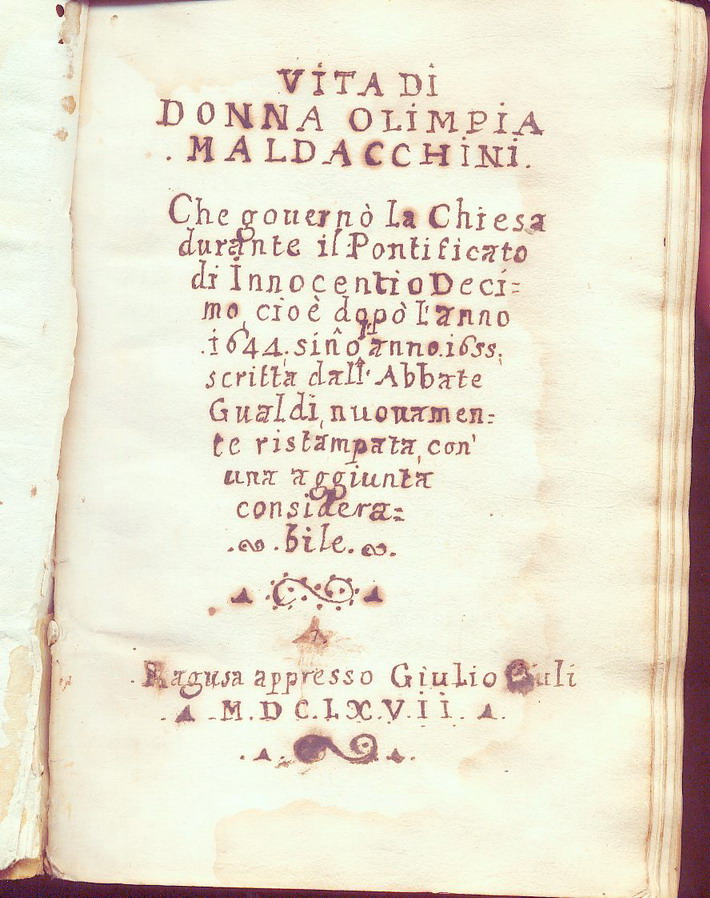 VITA DI
DONNA OLIMPIA
. MALDACCHINI.
Che gouernò la Chiesa
durante il Pontificato
di Innocentio Deci=
mo, cioè dopò l'anno
.1644. sin'o l'anno.1655.
scritta dall' Abbate
Gualdi, nuouamen=
te ristampata, con'
una aggiunta
considera=
.bile.
Ragusa appresso Giulio Giuli
.M.D C.LX.V.II.